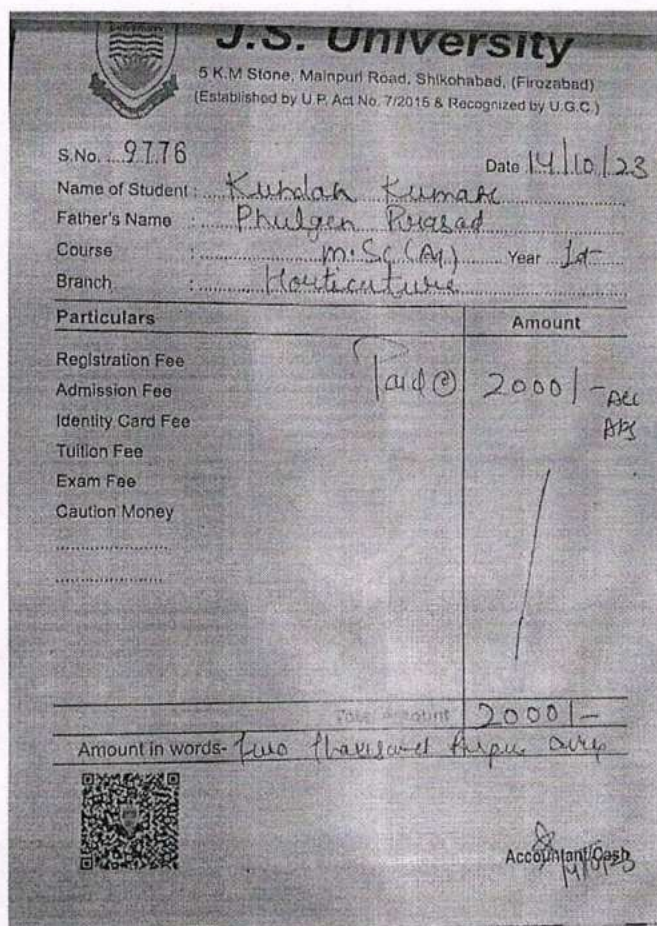 J.S. University
5 K.M Stone, Mainpuri Road, Shikohabad, (Firozabad)
(Established by U P. Act No. 7/2015 & Recognized by U.G.C.)
S.No. ....9776
Date 14/10/23
Name of Student : Kundan Kumar
Father's Name : Phulgen Prasad
Course : M.Sc (Ag.) Year 1st
Branch : Horticuture
Particulars Amount
Registration Fee
Admission Fee Paid @ 2000/-
Identity Card Fee
Tuition Fee
Exam Fee
Caution Money
Total Amount 2000/-
Amount in words- Two thousand only
Accountant/Cash
14/10/23